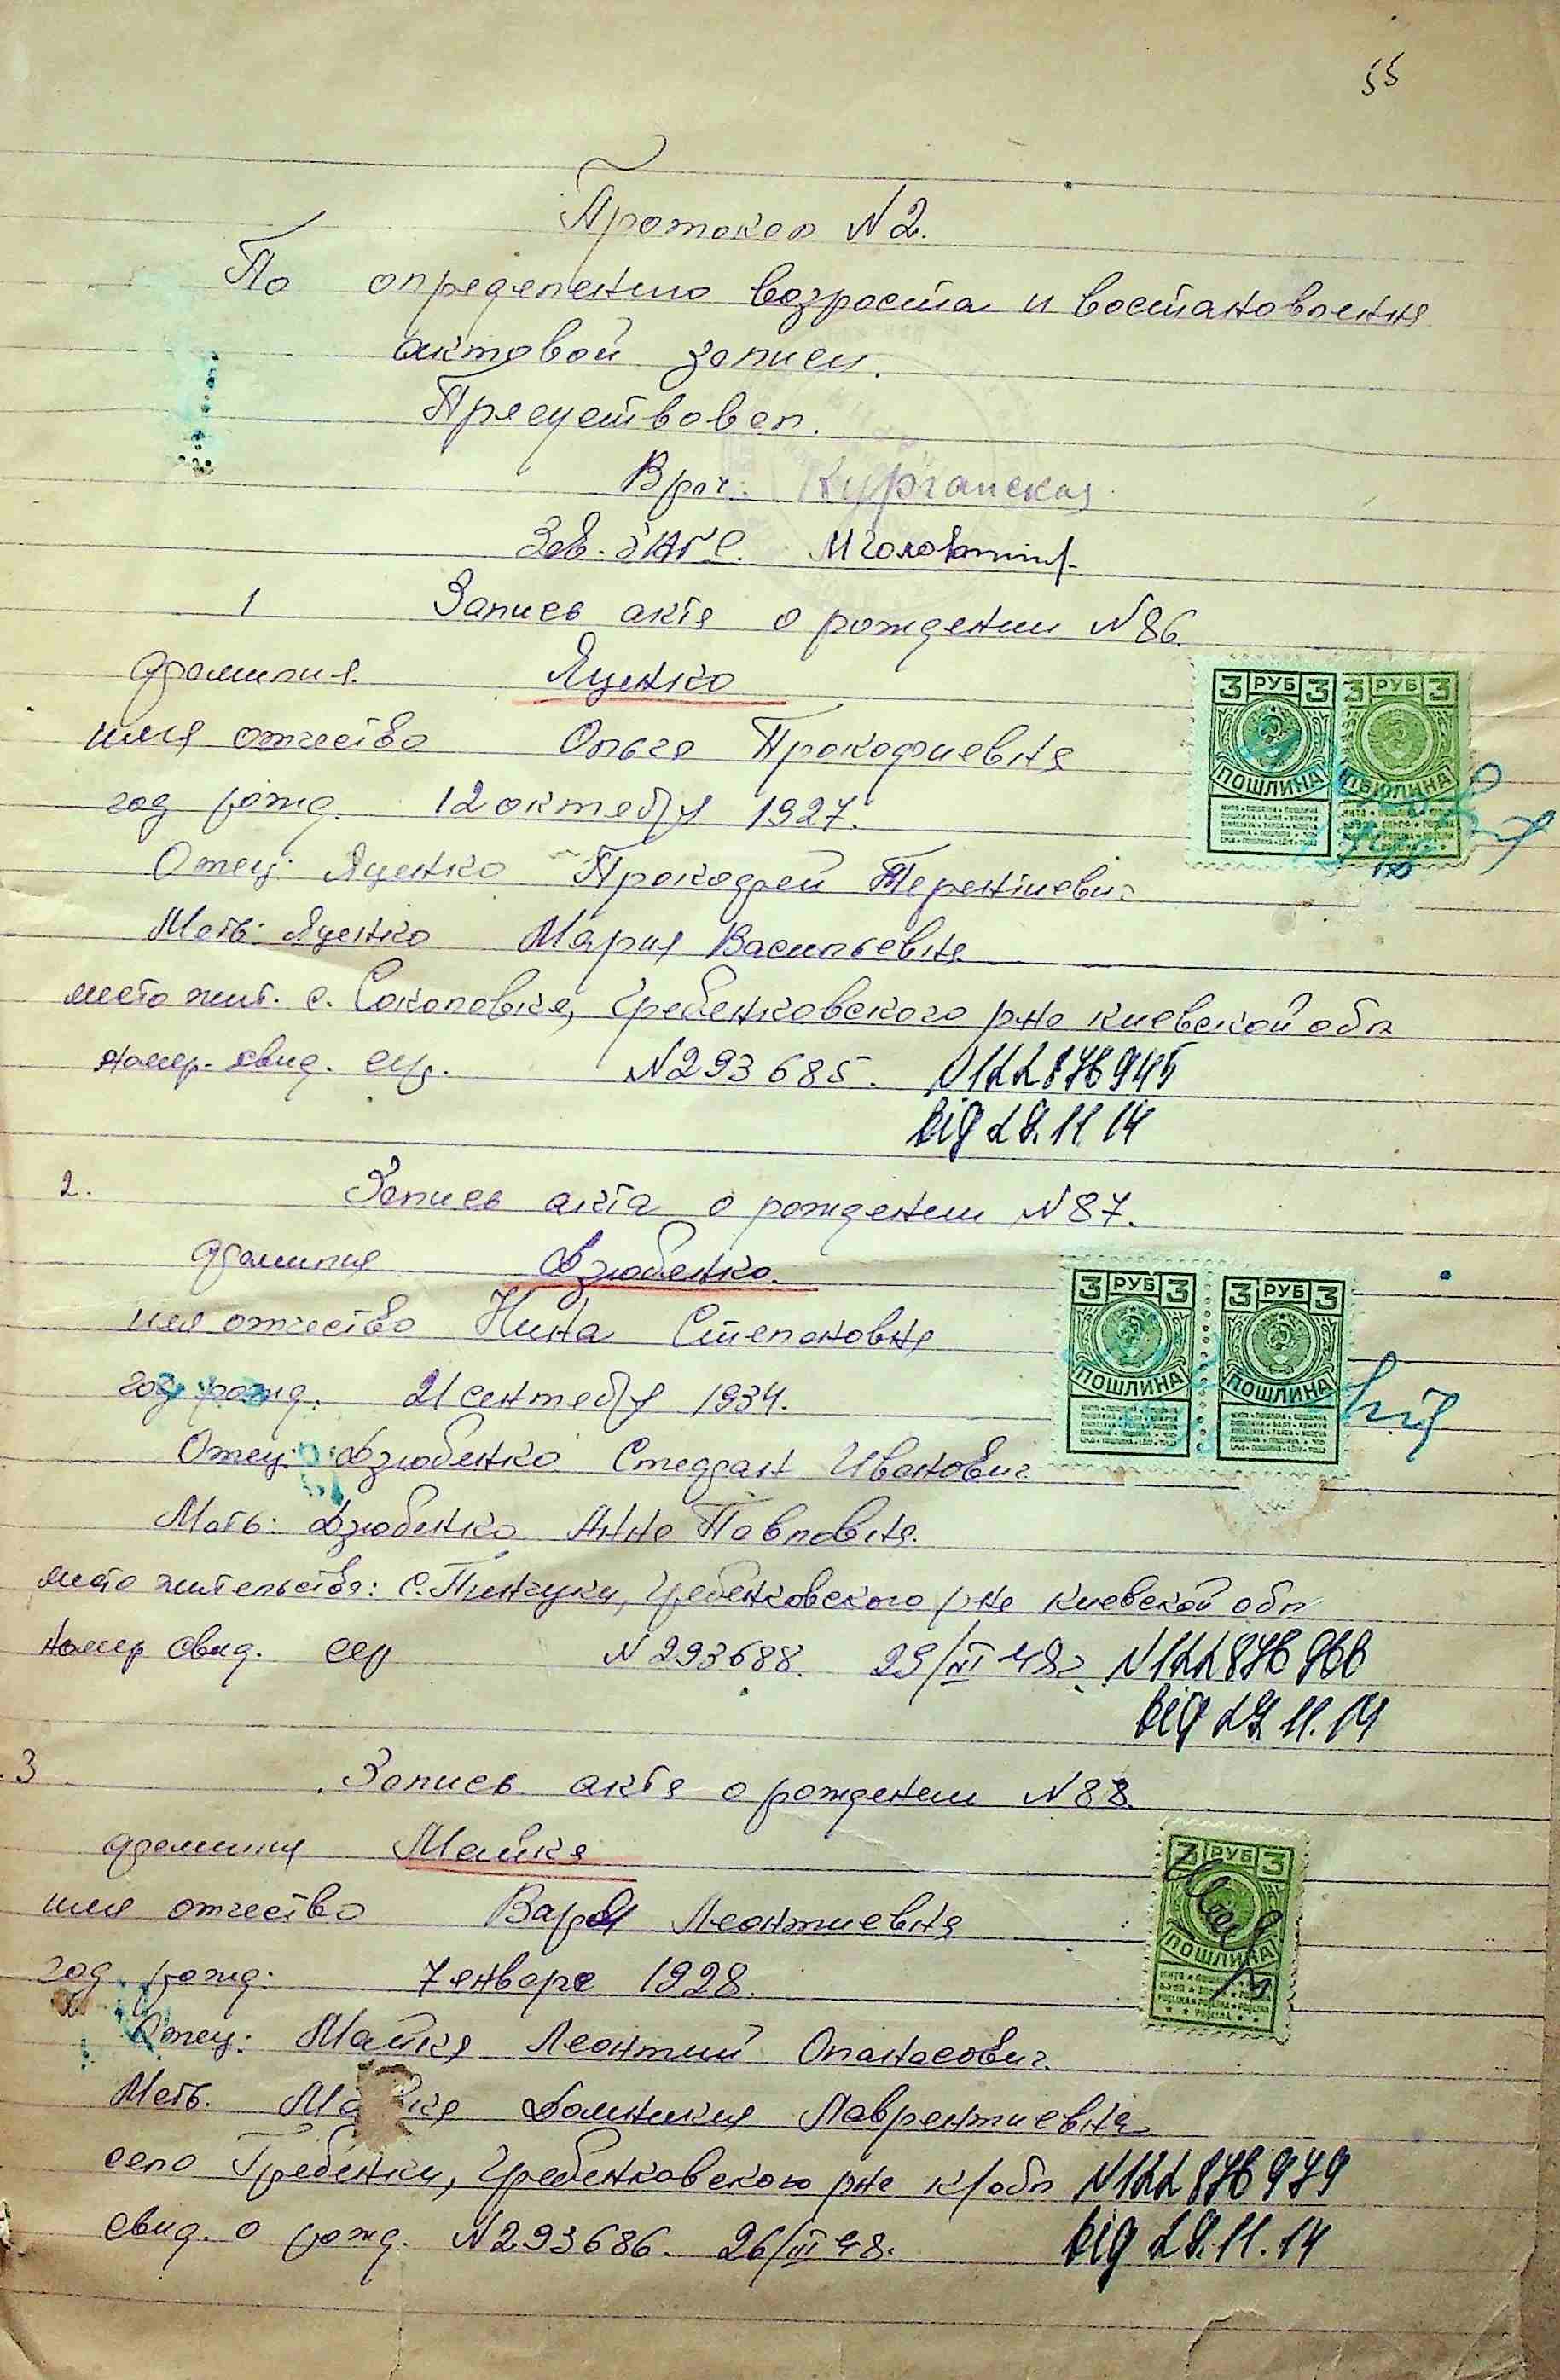 55
Протокол N 2.
По определению возроста и востановления
актовой записи.
Пресуствовал.
Врач: Курганская
Зав. ЗАГС.
1 Запись акта о рождении N 86.
фамилия. Яценко
имя отчество Ольга Прокофиевна
год рожд. 12 октебря 1927.
Отец: Яценко Прокофей Терентиевич
Мать: Яценко Мария Васильевна
место жит. с. Соколовка, Гребенковского р-на киевской обл
номер. свид. сер. N 293685. N 122876945
від 29.11.14
2. Запись акта о рождении N 87.
фамилия Дзюбенко.
имя отчество Нина Степановна
год рожд. 21 сентебря 1934.
Отец: Дзюбенко Стефан Иванович
Мать: Дзюбенко Анна Павловна.
место жительства: с. Пинчуки, Гребенковского р-на киевской обл
номер свид. сер N 293688. 29/VI 48г. N 122876
від 29.11.14
3 Запись акта о рождении N 88.
фамилия Майка
имя отчество Варя Леонтиевна
год рожд: 7 енваре 1928.
Отец: Майка Леонтий Опанасович.
Мать. Майка Домникия Лаврентиевна
село Гребенки, Гребенковского р-на к/обл N 122876979
свид. о рожд. N 293686. 26/III 48. від 29.11.14
3 РУБ 3 3 РУБ 3
ПОШЛИНА ПОШЛИНА
3 РУБ 3 3 РУБ 3
ПОШЛИНА ПОШЛИНА
від
3 РУБ 3
ПОШЛИНА